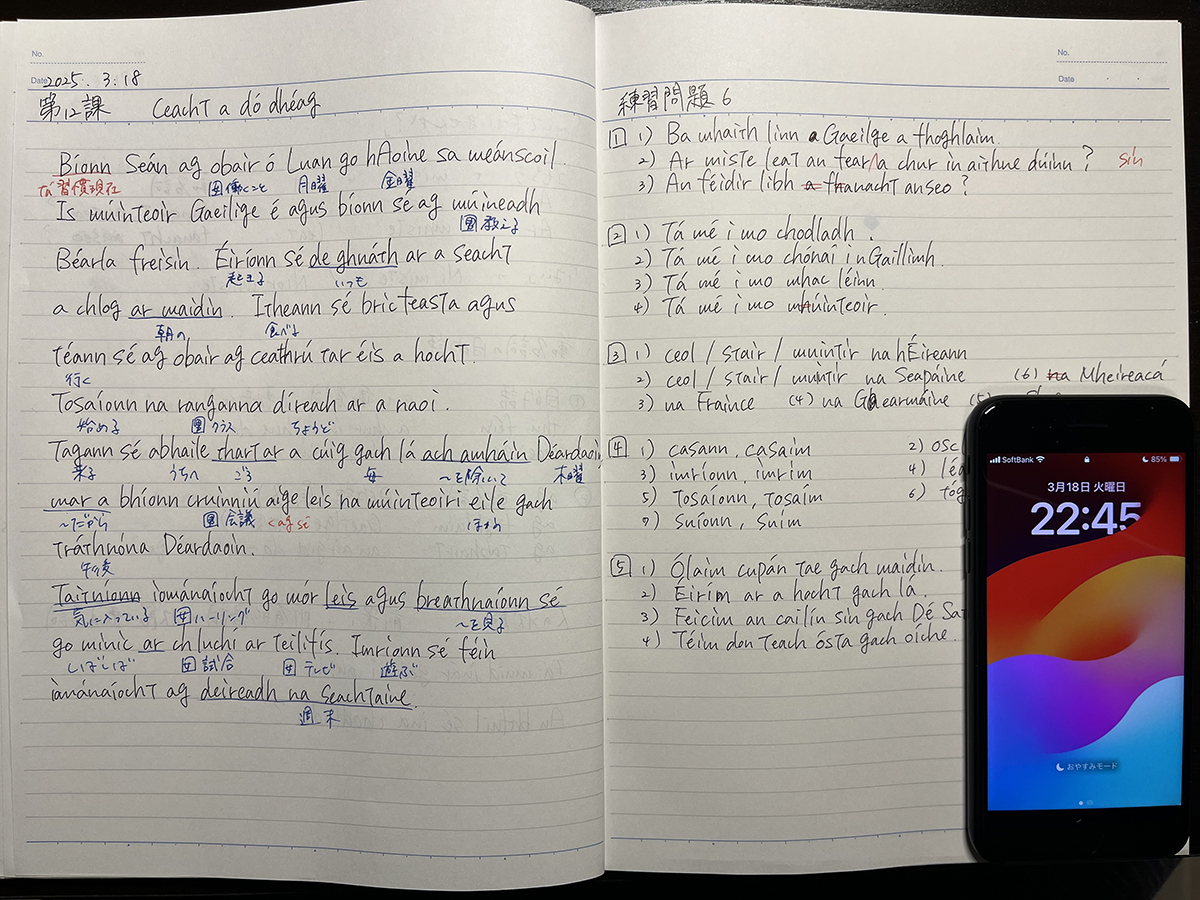 No.
Date 2025. 3. 18
第12課 Ceacht a dó dhéag
Bíonn Seán ag obair ó Luan go hAoine sa meánscoil.
tá習慣現在 男働くこと 月曜 金曜
Is múinteoir Gaeilige é agus bíonn sé ag múineadh
男教える
Béarla freisin. Éiríonn sé de ghnáth ar a seacht
起きる いつも
a chlog ar maidin. Itheann sé bricfeasta agus
朝へ 食べる
téann sé ag obair ag ceathrú tar éis a hocht.
行く
Tosaíonn na ranganna díreach ar a naoi.
始める 男クラス ちょうど
Tagann sé abhaile thart ar a cúig gach lá ach amháin Déardaoin,
来る うちへ ごろ 毎 〜を除いて 木曜
mar a bhíonn cruinniú aige leis na múinteoirí eile gach
〜だから 男会議 <ag sé ほかの
tráthnóna Déardaoin.
午後
Taitníonn iománaíocht go mór leis agus breathnaíonn sé
気に入っている 女ハーリング 〜を見る
go minic ar chluchí ar teilifís. Imríonn sé féin
しばしば 女試合 女テレビ 遊ぶ
iománaíocht ag deireadh na seachtaine.
週末
No.
Date
練習問題 6
1 1) Ba mhaith linn Gaeilge a fhoghlaim.
2) Ar miste leat an fear a chur in aithne dúinn? sin
3) An féidir libh fanacht anseo?
2 1) Tá mé i mo chodladh.
2) Tá mé i mo chónaí i nGaillimh.
3) Tá mé i mo mhac léinn.
4) Tá mé i mo mhúinteoir.
3 1) ceol / stair / muintir na hÉireann
2) ceol / stair / muintir na Seapáine (6) na Mheireacá
3) na Fraince (4) na Gearmáine (5)
4 1) casann, casaim 2) osc
3) imríonn, imrím 4)
5) tosaíonn, tosaím 6) tóg
7) suíonn, suím
5 1) Ólaim cupán tae gach maidin.
2) Éirím ar a hocht gach lá.
3) Feicim an cailín sin gach Dé Sat
4) Téim don teach ósta gach oíche.
SoftBank 85%
3月18日 火曜日
22:45
おやすみモード